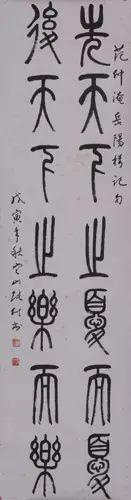 范仲淹岳陽樓記句
先天下之憂而憂
後天下之樂而樂
戊寅年秋